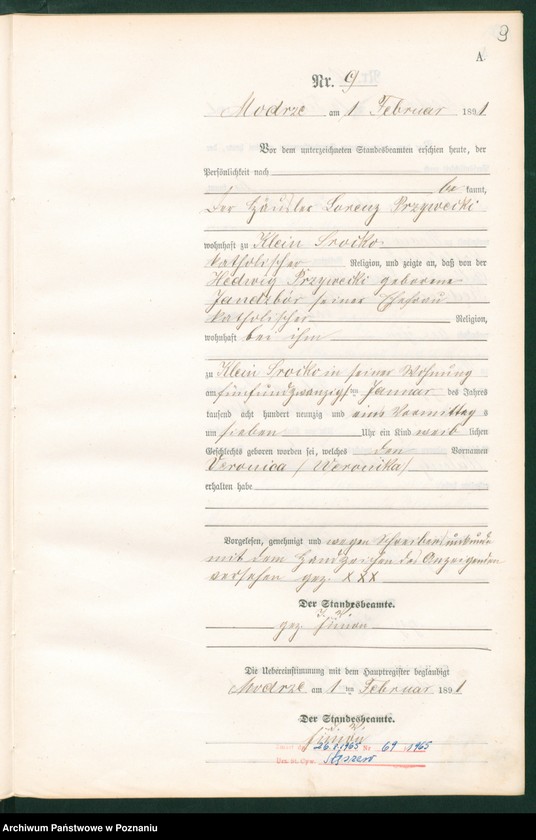 9
A
Nr. 9
Modrze am 1 Februar 1891
Vor dem unterzeichneten Standesbeamten erschien heute, der
Persönlichkeit nach
be kannt,
der Häusler Lorenz Przywecki
wohnhaft zu Klein Srocko
katholischer Religion, und zeigte an, daß von der
Hedwig Przywecki geborene
seiner Ehefrau
katholischer Religion,
wohnhaft bei ihm
zu Klein Srocko in seiner Wohnung
am fünfundzwanzigsten Januar des Jahres
tausend acht hundert neunzig und eins Vormittags
um sieben Uhr ein Kind weib lichen
Geschlechts geboren worden sei, welches den Vornamen
Veronica /Weronika/
erhalten habe
Vorgelesen, genehmigt und wegen
mit dem Handzeichen des Anzeigenden
versehen gez. XXX
Der Standesbeamte.
gez. Simon
Die Uebereinstimmung mit dem Hauptregister beglaubigt
Modrze am 1 ten Februar 1891
Der Standesbeamte.
Simon
26.V.1965 Nr 69 1965
Stęszew
Archiwum Państwowe w Poznaniu